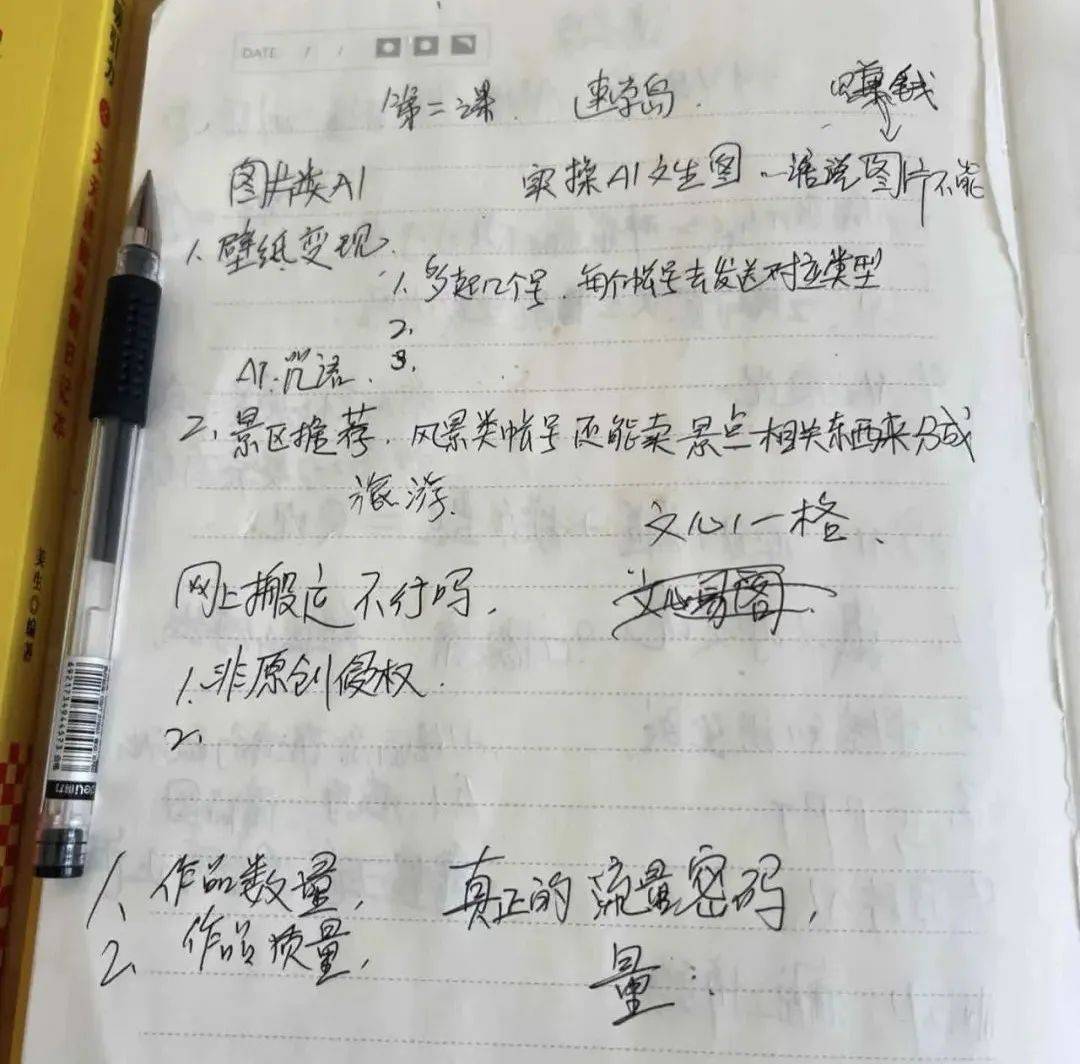 DATE / /
第二课 速学岛 赚钱
图片类AI 实操AI文生图 谁说图片不能
1. 壁纸变现.
1. 多起几个号. 每个帐号去发送对应类型
2.
AI: 咒语. 3.
2. 景区推荐. 风景类帐号还能卖景点相关东西来分成
旅游.
文心一格、
网上搬运不行吗.
1. 非原创侵权.
2.
1、作品数量, 真正的流量密码,
2、作品质量,
量:
美生〇编著
6921734944573
deli